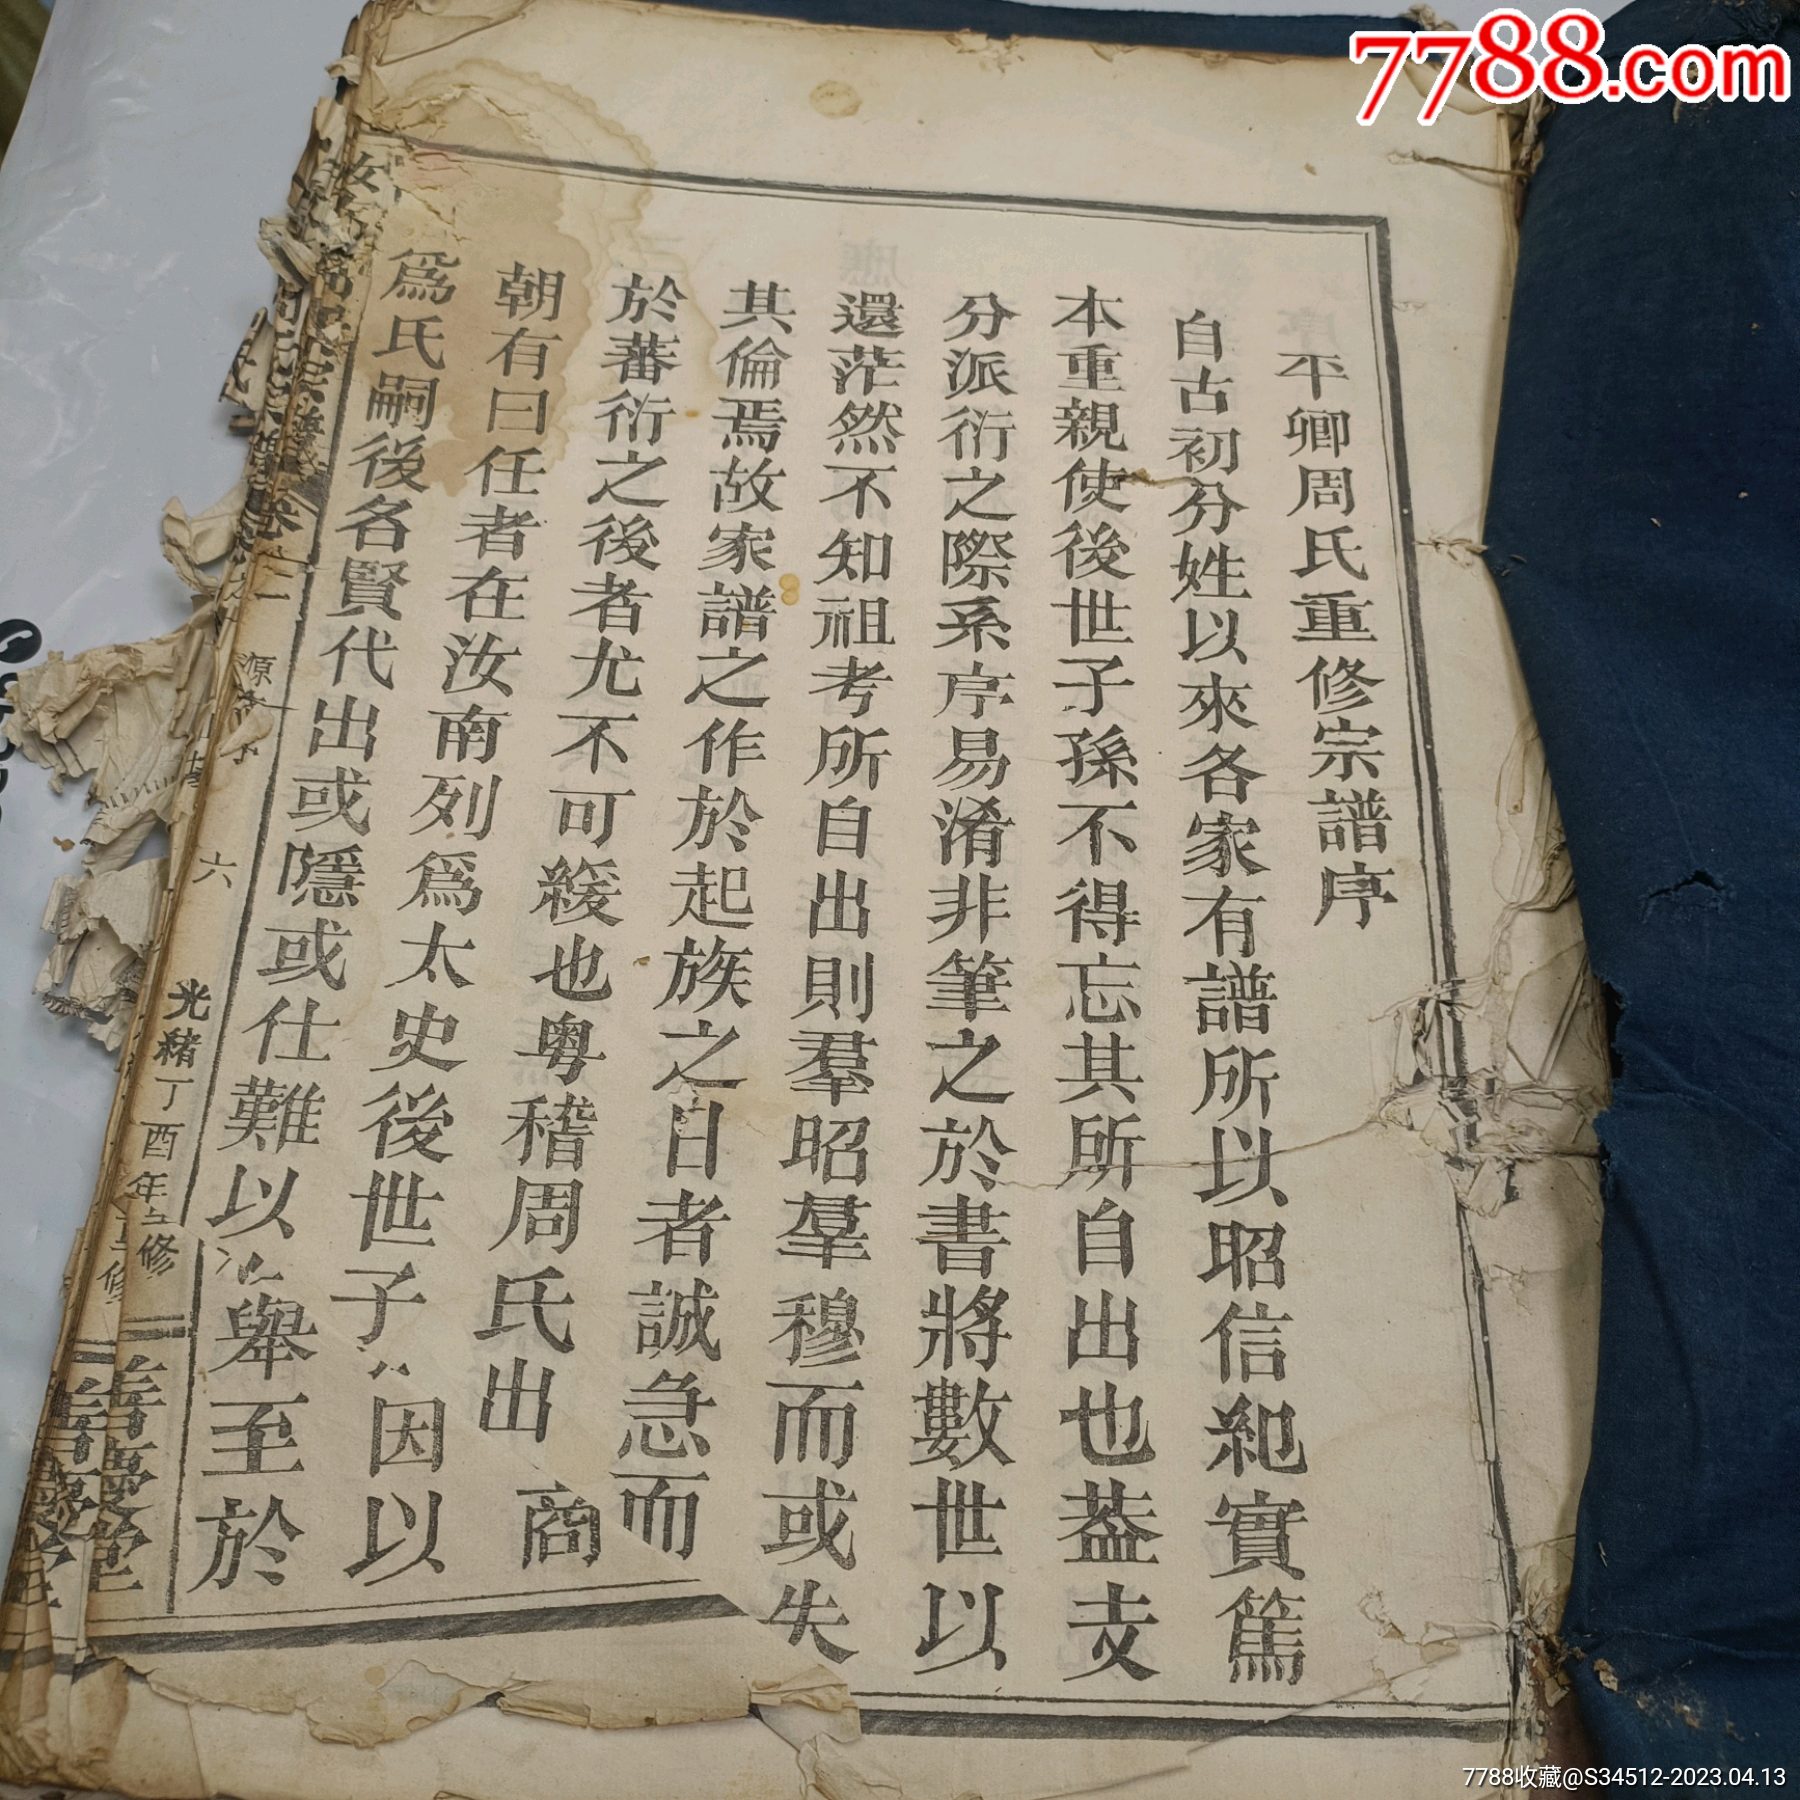 7788.com
平卿周氏重修宗譜序
自古初分姓以來各家有譜所以昭信紀實篤
本重親使後世子孫不得忘其所自出也葢支
分派衍之際系序易淆非筆之於書將數世以
還茫然不知祖考所自出則羣昭羣穆而或失
其倫焉故家譜之作於起族之日者誠急而
於蕃衍之後者尤不可緩也粤稽周氏出商
朝有曰任者在汝南列爲太史後世子因以
爲氏嗣後名賢代出或隱或仕難以舉至於
六
光緒丁酉年修
善慶堂
7788收藏@S34512-2023.04.13